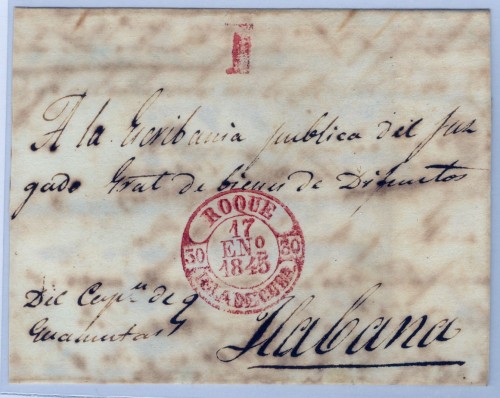 1
A la Escribania publica del Juz
gado Gral de bienes de Difuntos
ROQUE
17
ENº
1845
30 30
ISLA DE CUBA
Del Capn de
Guamutas
Habana